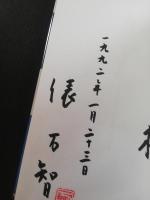 一九九二年一月二十三日
智